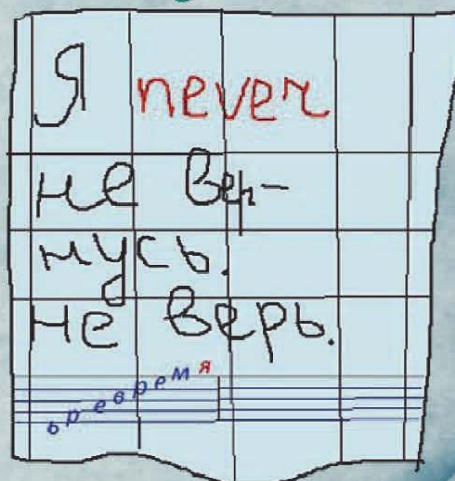 Я never
не вер-
нусь.
не верь.
ьревремя